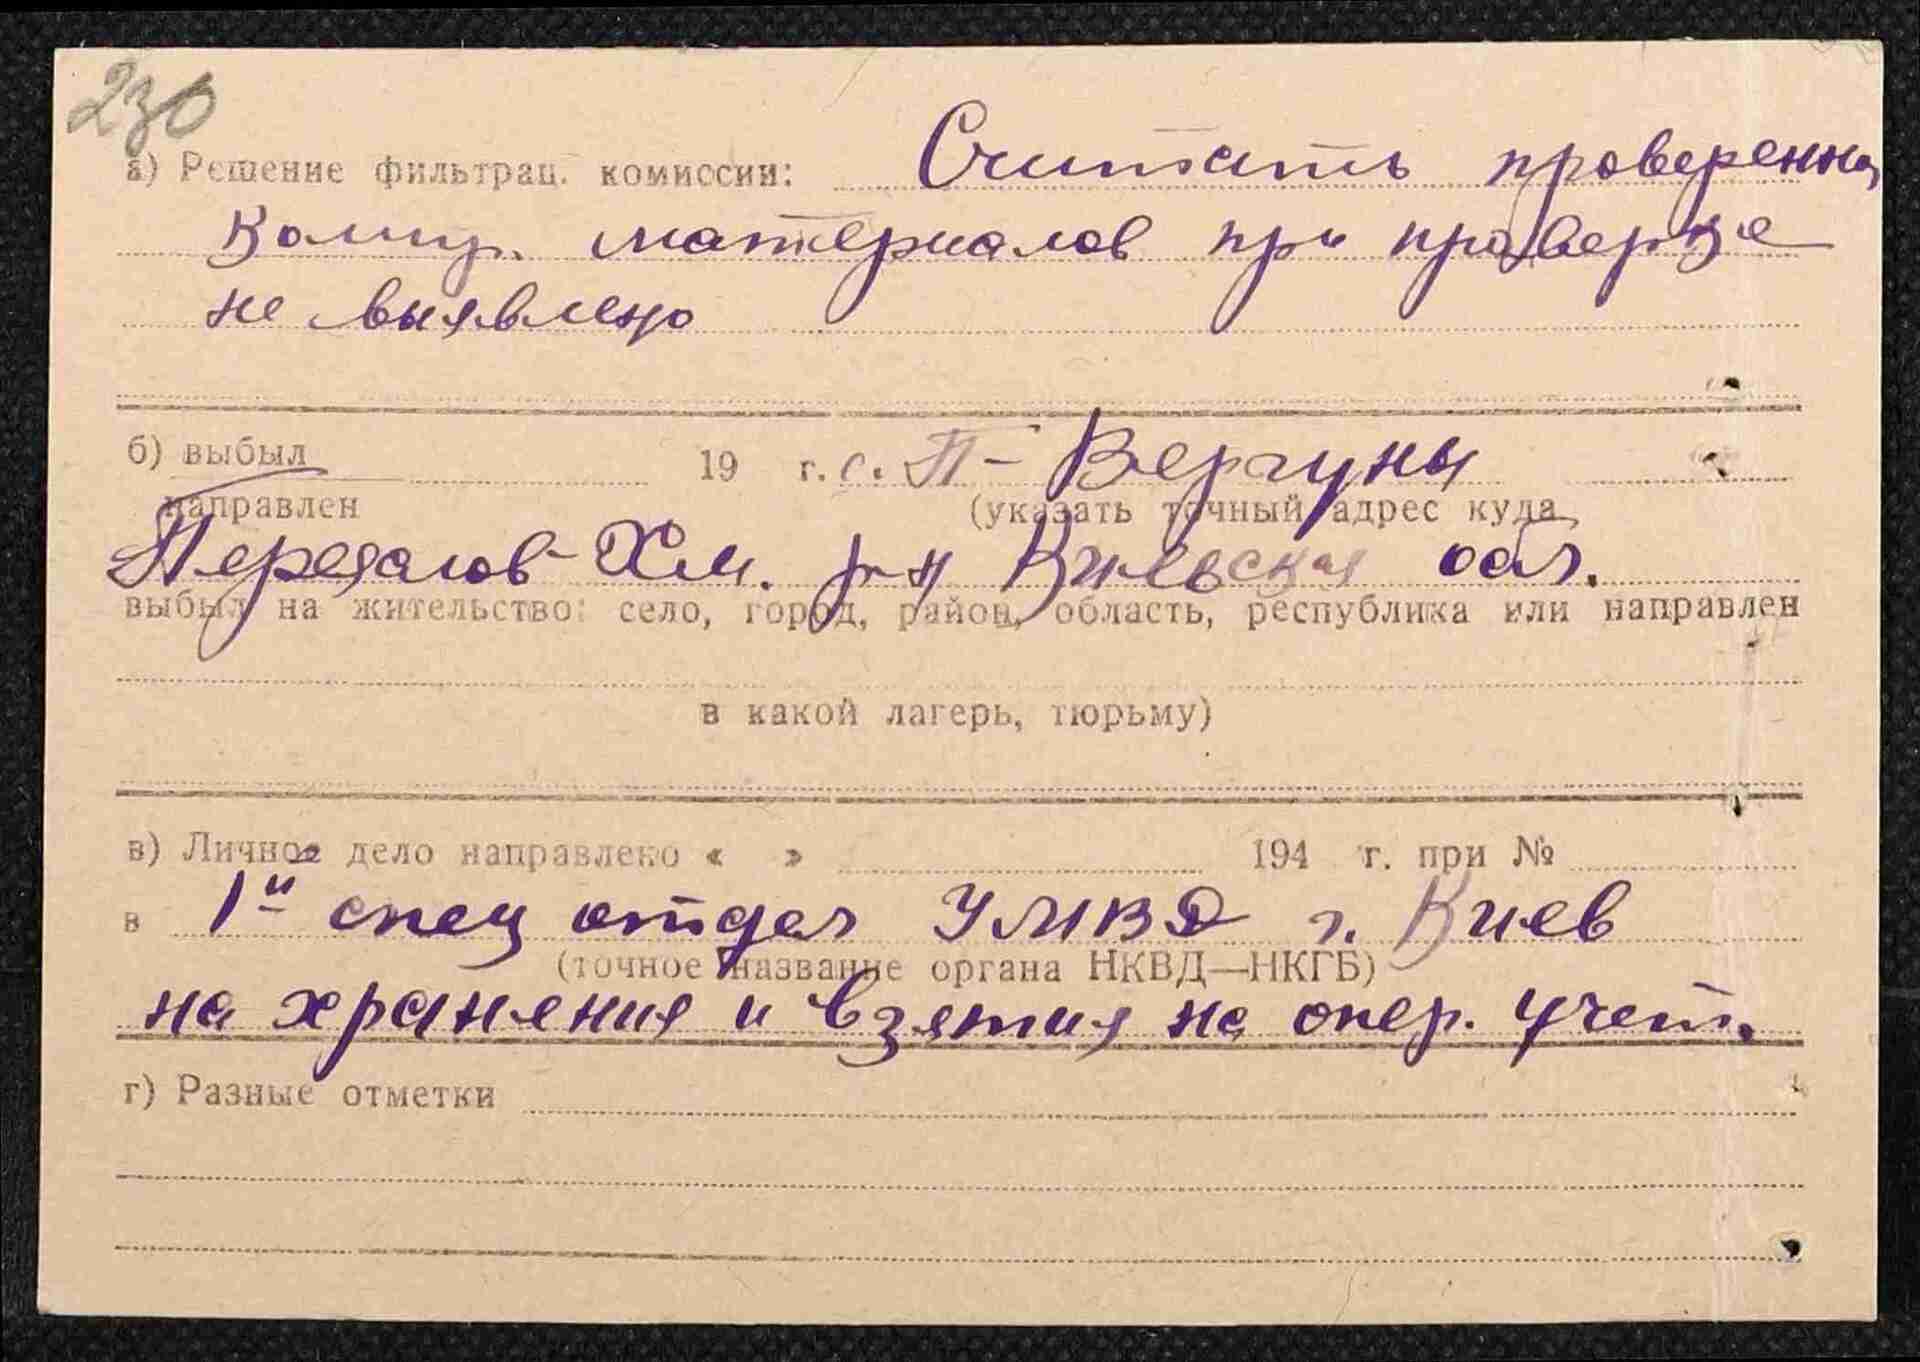 230
а) Решение фильтрац. комиссии: Считать проверенно,
комп. материалов при проверке
не выявлено
б) выбыл 19 г. с. П-Вергуны
направлен (указать точный адрес куда
Переяслов-Хм. р-н Киевская обл.
выбыл на жительство: село, город, район, область, республика или направлен
в какой лагерь, тюрьму)
в) Личное дело направлено « » 194 г. при №
в 1й спец отдел УМВД г. Киев
(точное название органа НКВД—НКГБ)
на хранения и взятия на опер. учет.
г) Разные отметки